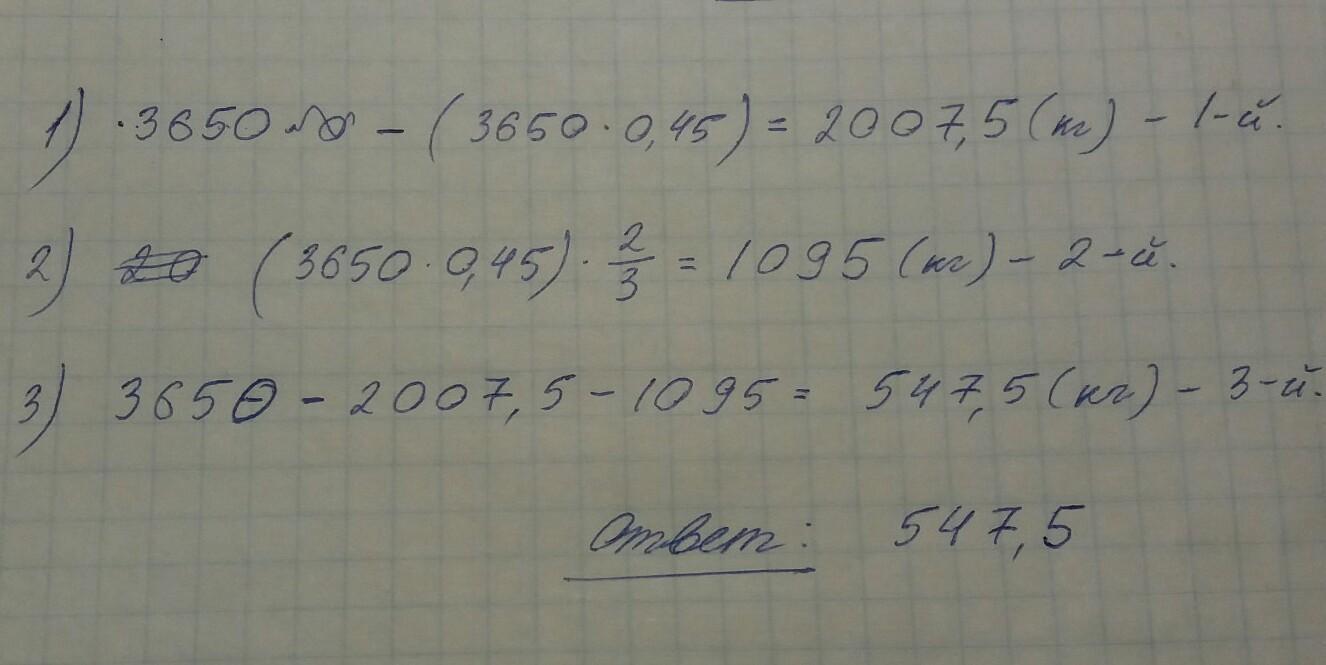 1) 3650 - (3650 · 0,45) = 2007,5 (кг) - 1-й.
2) (3650 · 0,45) · 2/3 = 1095 (кг) - 2-й.
3) 3650 - 2007,5 - 1095 = 547,5 (кг) - 3-й.
Ответ: 547,5